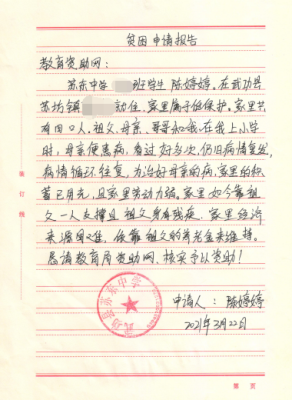 贫困申请报告
教育资助网：
苏东中学 班学生 陈婷婷。在武功县
苏坊镇 幼住，家里属于低保护。家里共
有四口人。祖父、母亲、哥哥和我，在我上小学
时，母亲便患病，看过好多次，仍旧病情复发，
病情循环往复，为治好母亲的病，家里的积
蓄已用光，且家里劳动力弱。家里如今靠祖
父一人支撑且祖父身有残疾，家里经济
来源困乏，依靠祖父的养老金来维持。
恳请教育局资助网，核实予以资助！
申请人：陈婷婷
2021年3月22日
武功县苏东中学
装订线
第 页